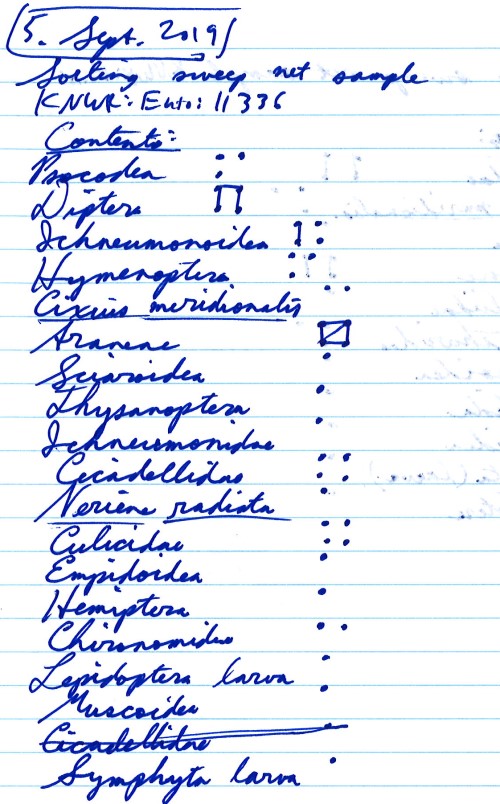 5. Sept. 2019
Sorting sweep net sample
KNWR:Ento:11336
Contents:
Psocodea
Diptera
Ichneumonoidea
Hymenoptera
Cixius meridionalis
Araneae
Sciaroidea
Thysanoptera
Ichneumonidae
Cicadellidae
Neriene radiata
Culicidae
Empidoidea
Hemiptera
Chironomidae
Lepidoptera larva
Muscoidea
Cicadellidae
Symphyta larva